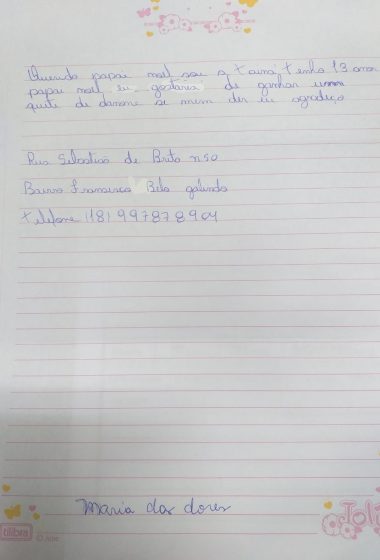 Querido papai noel sou a tainá tenho 13 anos
papai noel eu gostaria de ganhar um
quite de danone se mim der eu agradeço
Rua Sebastião de Brito n 50
Bairro Francisco Bela galindo
telefone (18) 997878904
Maria das dores
tilibra
Joli